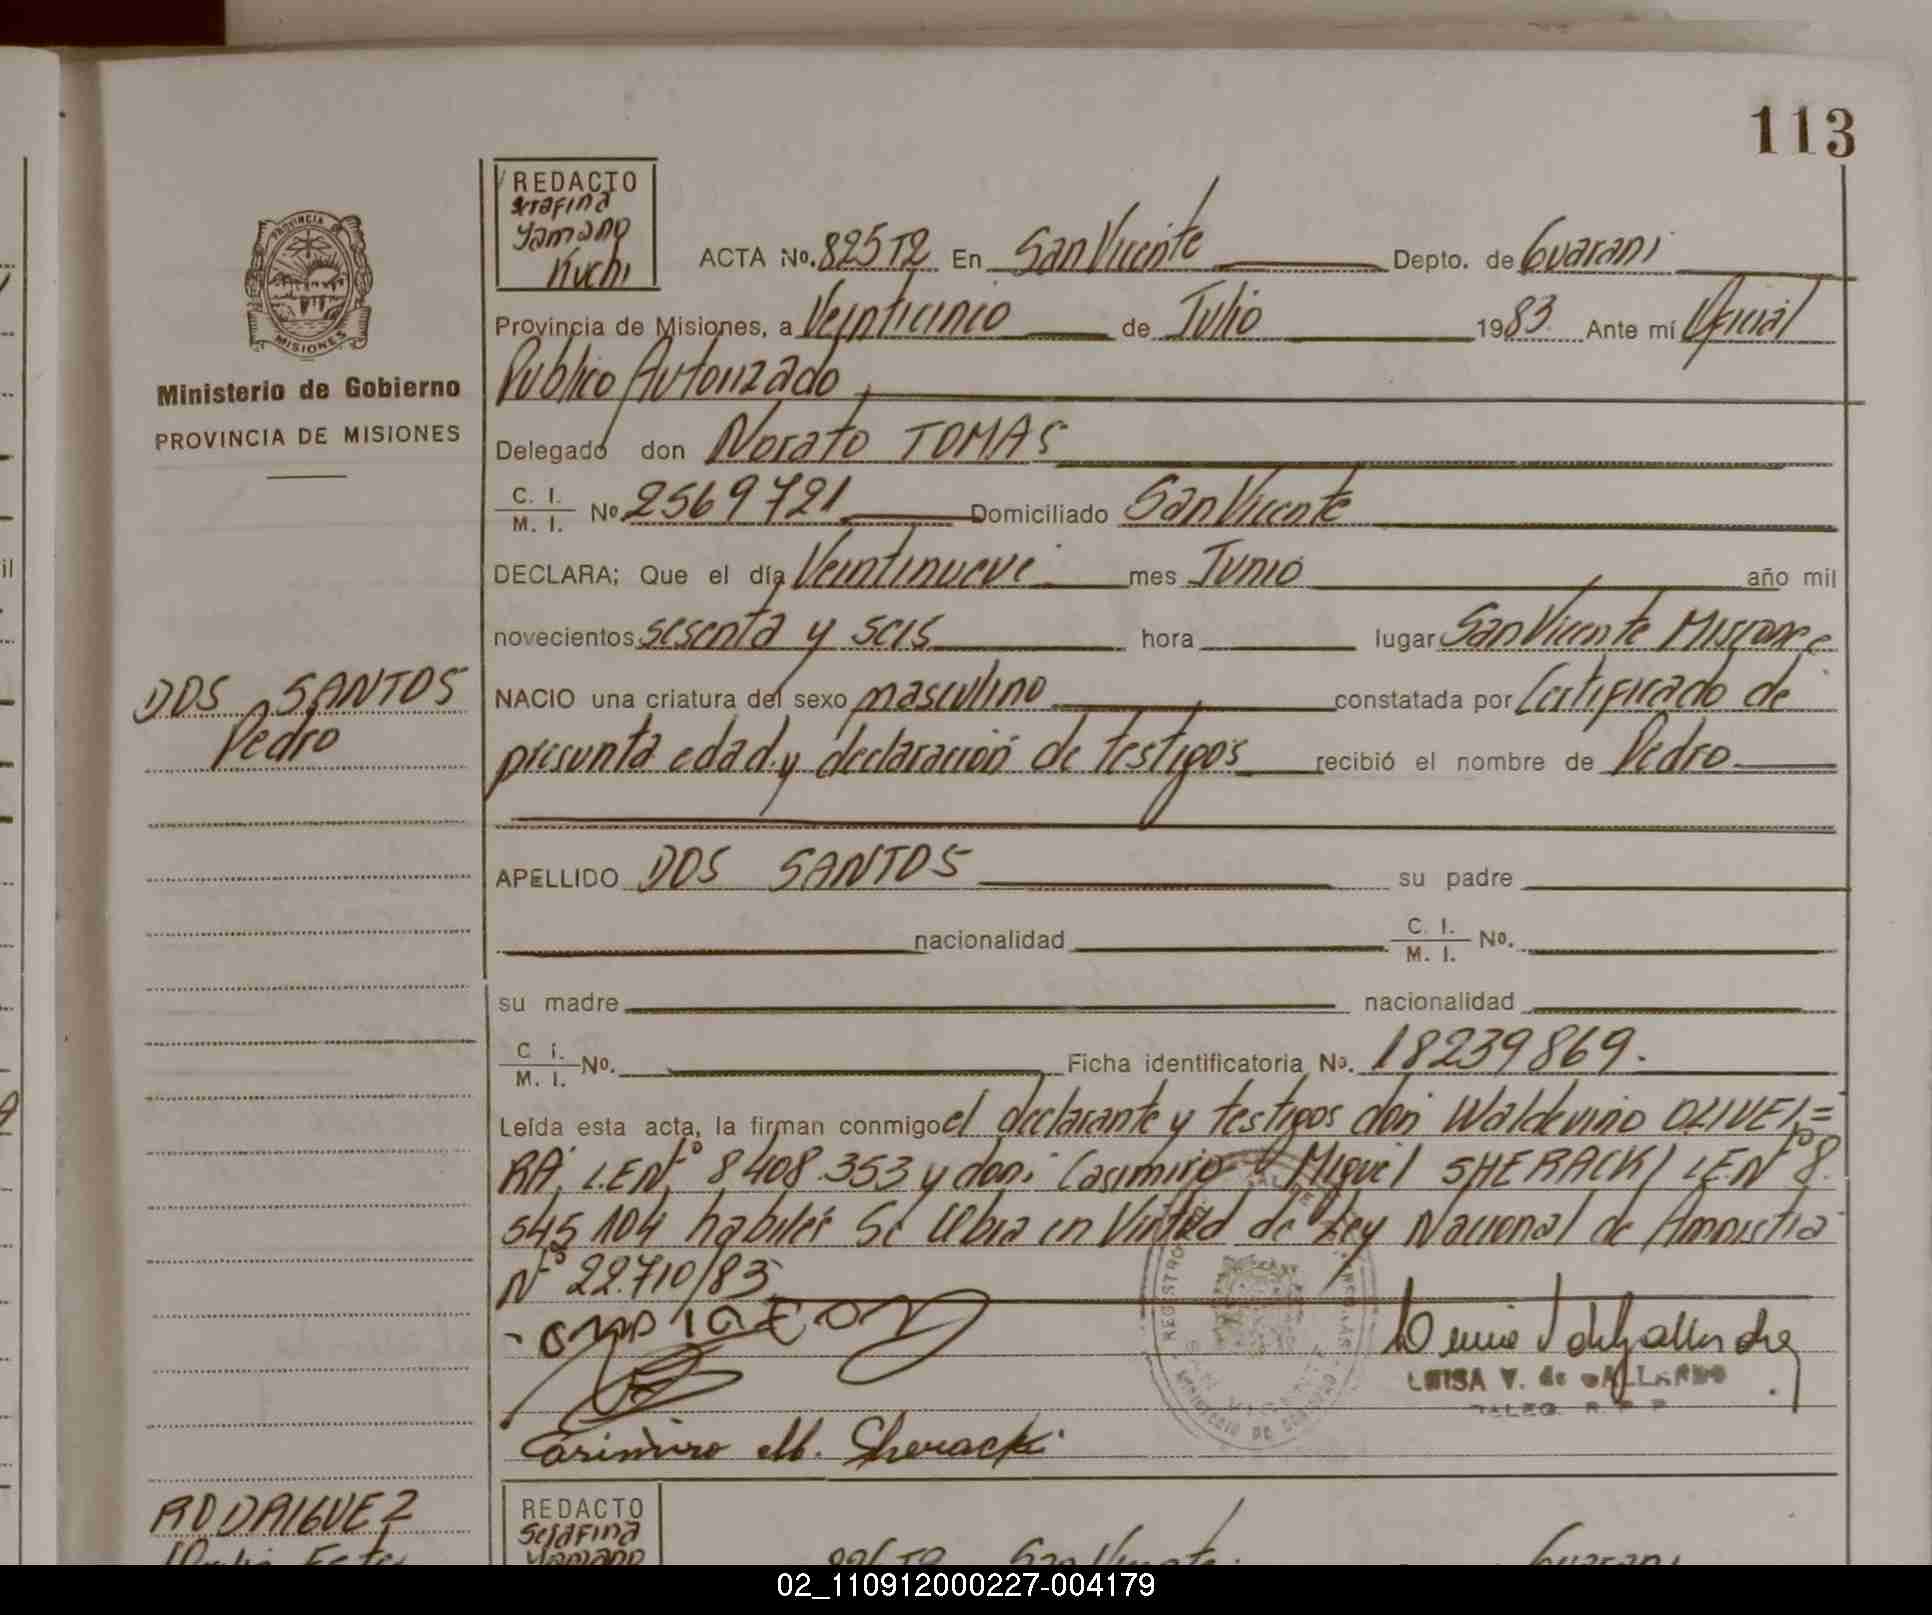 113
REDACTO
Serafina
Yamano
Kuchi
ACTA No. 825T2 En San Vicente Depto. de Guarani
PROVINCIA
MISIONES
Provincia de Misiones, a Veinticinco de Julio 1983 Ante mí Oficial
Publico Autorizado
Ministerio de Gobierno
PROVINCIA DE MISIONES
Delegado don Norato TOMAS
C. I.
M. I. No 2569721 Domiciliado San Vicente
DECLARA; Que el día Veintinueve mes Junio año mil
novecientos sesenta y seis hora lugar San Vicente Misiones
DOS SANTOS
Pedro
NACIO una criatura del sexo masculino constatada por Certificado de
presunta edad y declaración de testigos recibió el nombre de Pedro
APELLIDO DOS SANTOS su padre
nacionalidad C. I.
M. I. No.
su madre nacionalidad
C. I.
M. I. No. Ficha identificatoria No. 18239869.
Leída esta acta, la firman conmigo el declarante y testigos don Waldevino OLIVEI=
RA, L.E Nº 8408.353 y don Casimiro Miguel SHERACKI L.E Nº 8.
545 104 habiles Se labra en Virtud de Ley Nacional de Amnistia
Nº 22.710/83
LUISA V. de GALLARDO
Casimiro M. Sheracki
RODRIGUEZ
REDACTO
Serafina
Yamano
826T2 San Vicente Guarani
02_110912000227-004179